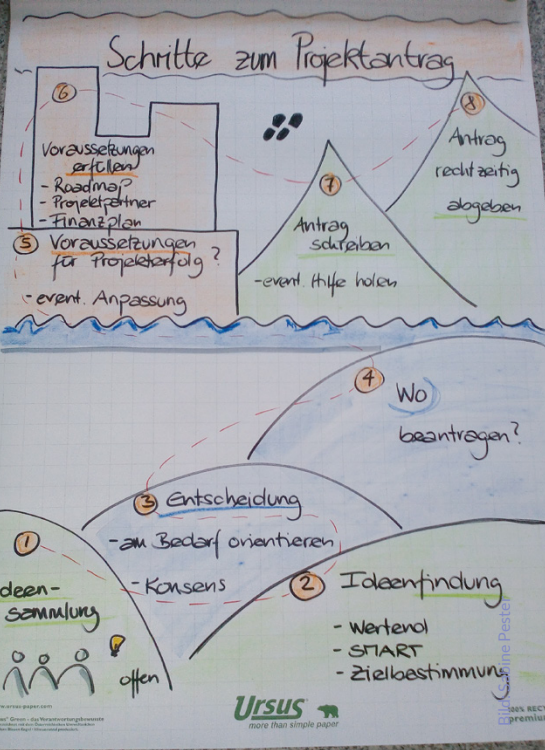 Schritte zum Projektantrag
6
Voraussetzungen
erfüllen
- Roadmap
- Projektpartner
- Finanzplan
5 Voraussetzungen
für Projekterfolg?
- event. Anpassung
7
Antrag
schreiben
- event. Hilfe holen
8
Antrag
rechtzeitig
abgeben
4
Wo
beantragen?
3 Entscheidung
- am Bedarf orientieren
- Konsens
1
deen-
sammlung
offen
2 Ideenfindung
- Wertend
- SMART
- Zielbestimmung
Bild: Sabine Pester
Ursus
more than simple paper
w.ursus-paper.com
premium